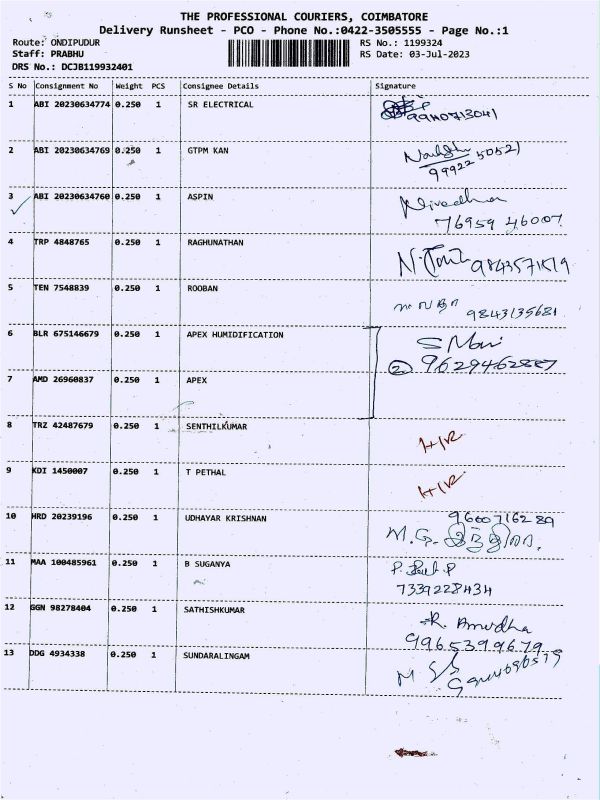 THE PROFESSIONAL COURIERS, COIMBATORE
Delivery Runsheet - PCO - Phone No.:0422-3505555 - Page No.:1
Route: ONDIPUDUR RS No.: 1199324
Staff: PRABHU RS Date: 03-Jul-2023
DRS No.: DCJB119932401
S No Consignment No Weight PCS Consignee Details Signature
1 ABI 20230634774 0.250 1 SR ELECTRICAL
9940713041
2 ABI 20230634769 0.250 1 GTPM KAN
99922 50521
3 ABI 20230634760 0.250 1 ASPIN Nivedha
76959 46007
4 TRP 4848765 0.250 1 RAGHUNATHAN
5 TEN 7548839 0.250 1 ROOBAN
9843135681
6 BLR 675146679 0.250 1 APEX HUMIDIFICATION S Mani
2 9629462887
7 AMD 26960837 0.250 1 APEX
8 TRZ 42487679 0.250 1 SENTHILKUMAR
9 KDI 1450007 0.250 1 T PETHAL
9600716289
10 HRD 20239196 0.250 1 UDHAYAR KRISHNAN
11 MAA 100485961 0.250 1 B SUGANYA
7339228434
12 GGN 98278404 0.250 1 SATHISHKUMAR R. Anudha
9965399679
13 DDG 4934338 0.250 1 SUNDARALINGAM